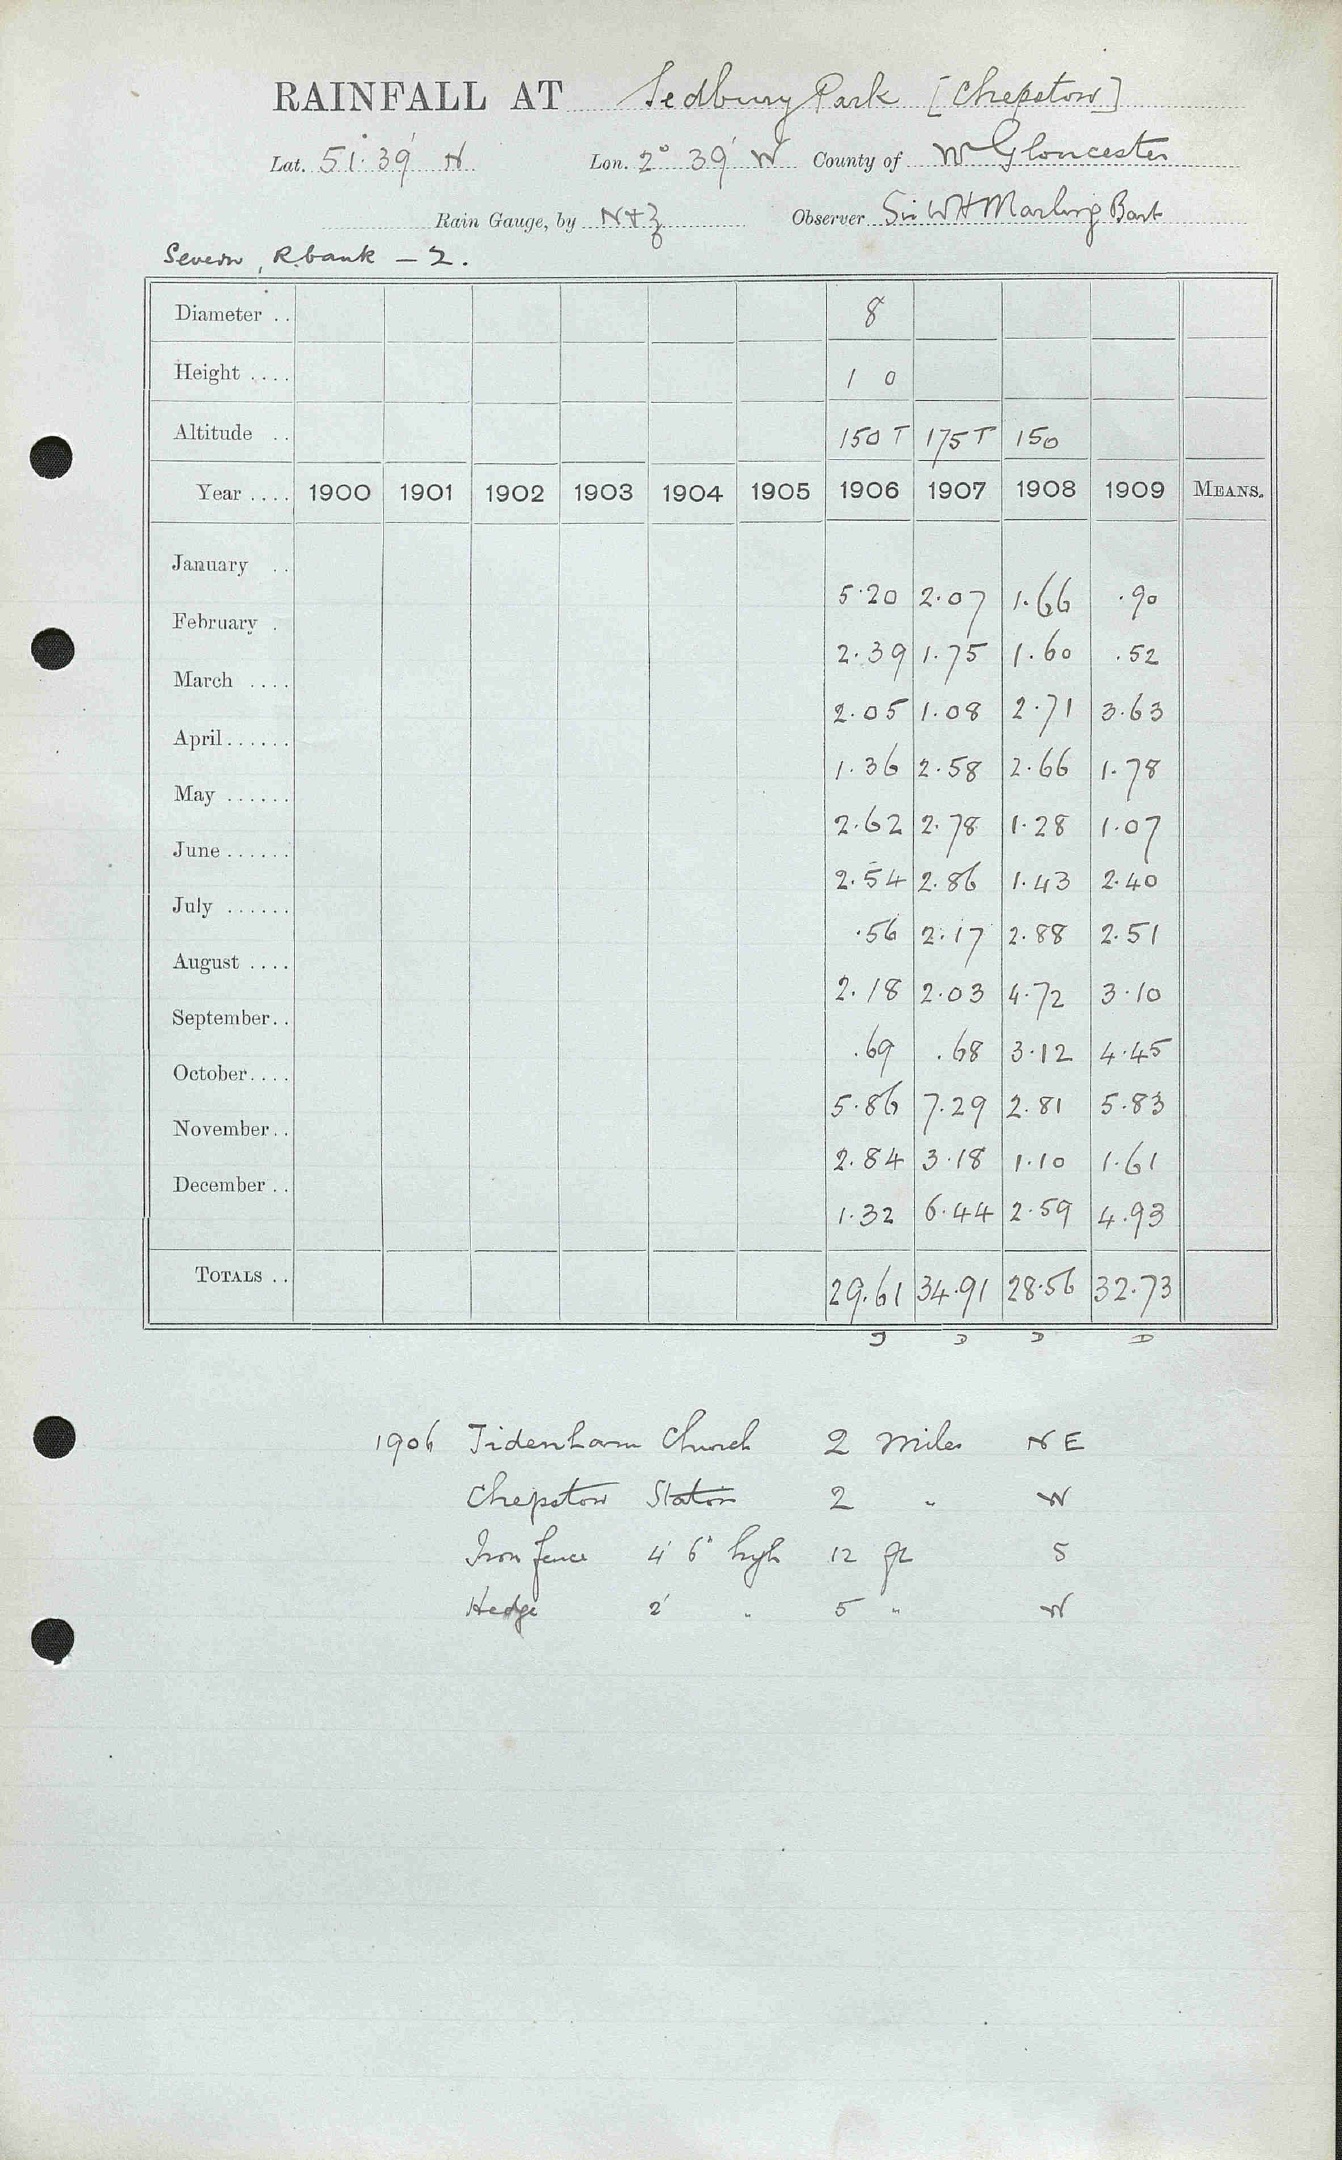 RAINFALL AT Sedbury Park [Chepstow]
Lat. 51° 39' N Lon. 2° 39' W County of W Gloucester
Rain Gauge, by N+Z Observer Sir W H Marling Bart
Severn, R. bank - 2.
Diameter .. 8
Height .... 1 0
Altitude .. 150 T 175 T 150
Year .... 1900 1901 1902 1903 1904 1905 1906 1907 1908 1909 MEANS.
January .. 5.20 2.07 1.66 .90
February . 2.39 1.75 1.60 .52
March .... 2.05 1.08 2.71 3.63
April...... 1.36 2.58 2.66 1.78
May ...... 2.62 2.78 1.28 1.07
June ...... 2.54 2.86 1.43 2.40
July ...... .56 2.17 2.88 2.51
August .... 2.18 2.03 4.72 3.10
September.. .69 .68 3.12 4.45
October.... 5.86 7.29 2.81 5.83
November.. 2.84 3.18 1.10 1.61
December .. 1.32 6.44 2.59 4.93
TOTALS .. 29.61 34.91 28.56 32.73
J D D D
1906 Tidenham Church 2 miles N E
Chepstow Station 2 " W
Iron fence 4' 6" high 12 ft S
Hedge 2' " 5 " W